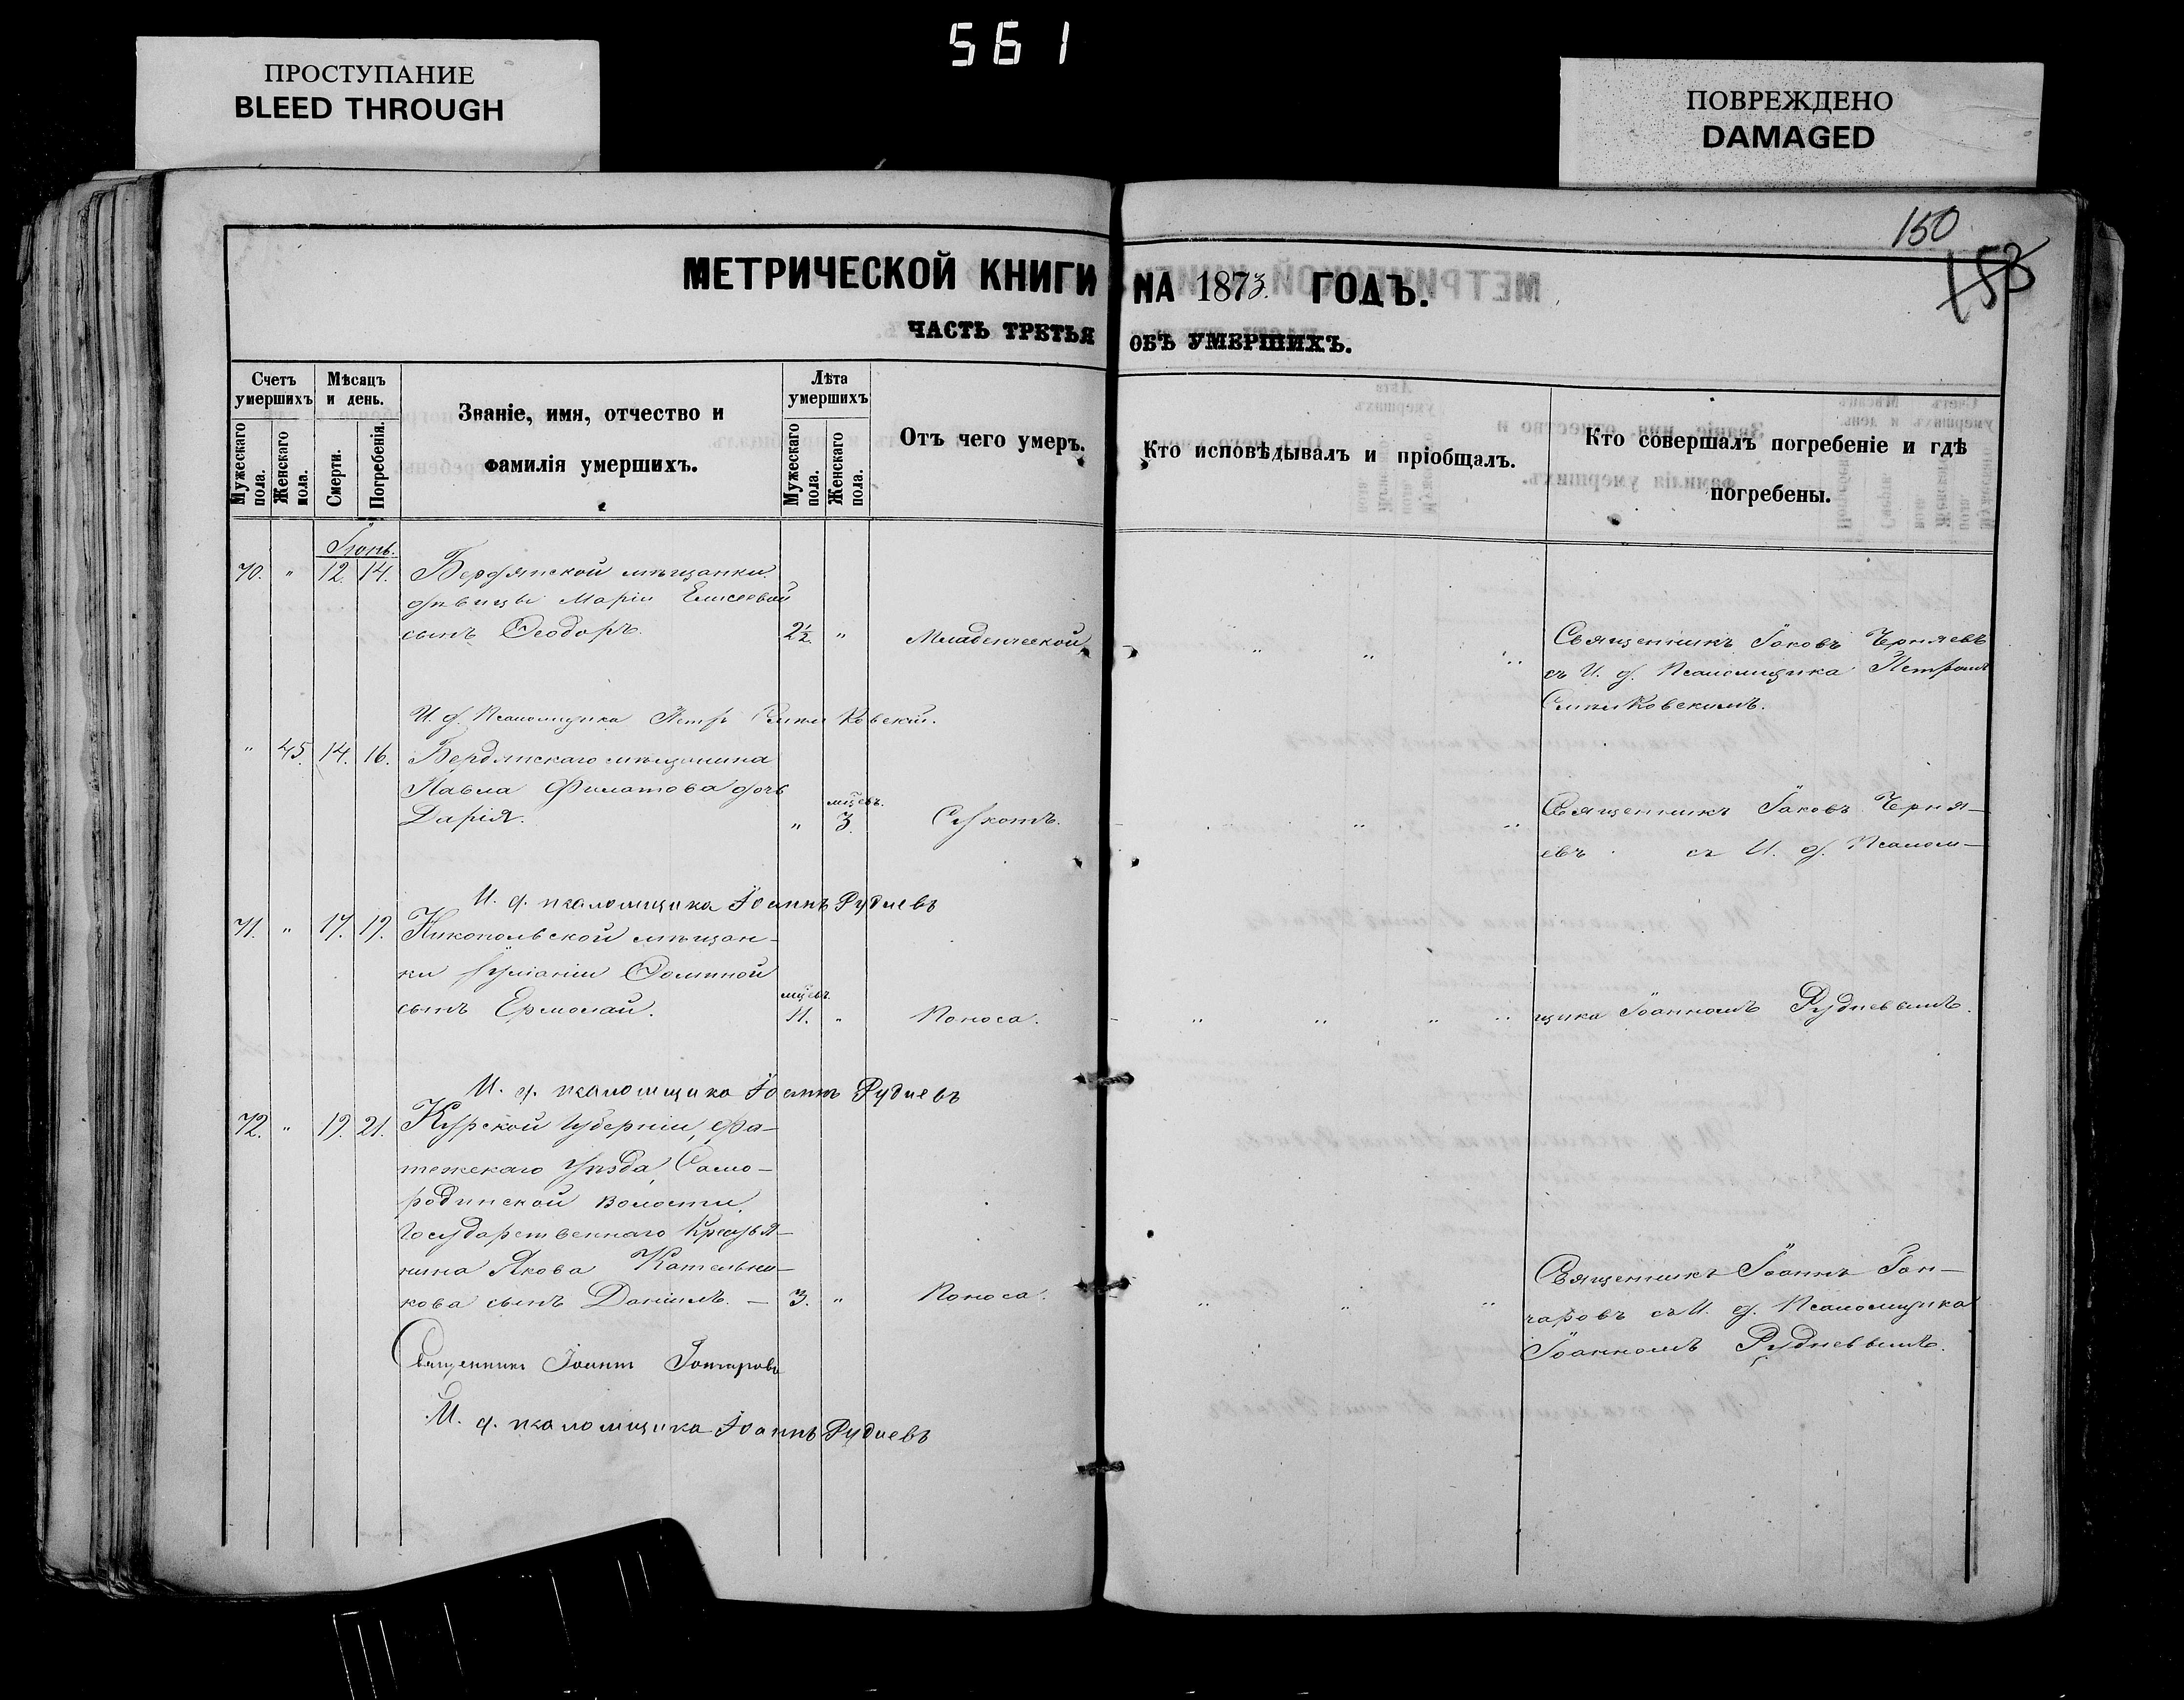 561
ПРОСТУПАНИЕ
BLEED THROUGH
ПОВРЕЖДЕНО
DAMAGED
150
153
МЕТРИЧЕСКОЙ КНИГИ НА 1873. ГОДЪ.
ЧАСТЬ ТРЕТЬЯ ОБЪ УМЕРШИХЪ.
Счетъ умершихъ
Мужескаго пола.
Женскаго пола.
Мѣсяцъ и день.
Смерти.
Погребенія.
Званіе, имя, отчество и
фамилія умершихъ.
Лѣта умершихъ
Мужескаго пола.
Женскаго пола.
Отъ чего умеръ.
Кто исповѣдывалъ и пріобщалъ.
Кто совершалъ погребеніе и гдѣ
погребены.
Іюнь.
70. " 12. 14. Бердянской мѣщанки
дѣвицы Маріи Елисеевой
сынъ Ѳеодоръ. 2½ " Младенческой
Священникъ Іаковъ Черняевъ
съ И. д. Псаломщика Петромъ
И. д. Псаломщика Петръ
" 45. 14. 16. Бердянскаго мѣщанина
Павла Филатова дочь
Дарія. " мцевъ. 3. Сухотъ.
Священникъ Іаковъ Черня-
евъ съ И. д. Псалом-
И. д. псаломщика Іоаннъ Рудневъ
71. " 17. 19. Никопольской мѣщан-
ки Ѳоминой
сынъ Ермолай. мцевъ. 11. " Поноса.
щика Іоанномъ Рудневымъ.
И. д. псаломщика Іоаннъ Рудневъ
72. " 19. 21. Курской губерніи, Фа-
тежскаго уѣзда, Само-
родинской волости,
государственнаго крестья-
нина Якова Котельни-
кова сынъ Даніилъ. — 3. " Поноса.
Священникъ Іоаннъ Гон-
чаровъ съ И. д. Псаломщика
Іоанномъ Рудневымъ.
Священникъ Іоаннъ Гончаровъ
И. д. псаломщика Іоаннъ Рудневъ